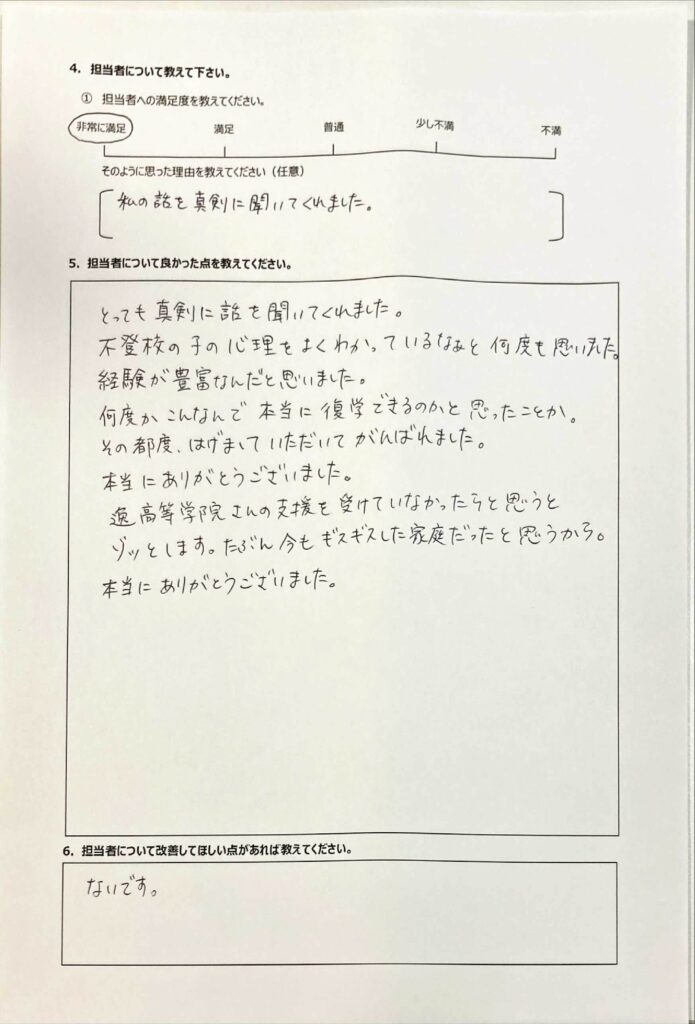 4．担当者について教えて下さい。
① 担当者への満足度を教えてください。
非常に満足 満足 普通 少し不満 不満
そのように思った理由を教えてください（任意）
私の話を真剣に聞いてくれました。
5．担当者について良かった点を教えてください。
とっても真剣に話を聞いてくれました。
不登校の子の心理をよくわかっているなぁと何度も思いました。
経験が豊富なんだと思いました。
何度かこんなんで本当に復学できるのかと思ったことか。
その都度、はげましていただいてがんばれました。
本当にありがとうございました。
逸高等学院さんの支援を受けていなかったらと思うと
ゾッとします。たぶん今もギスギスした家庭だったと思うから。
本当にありがとうございました。
6．担当者について改善してほしい点があれば教えてください。
ないです。